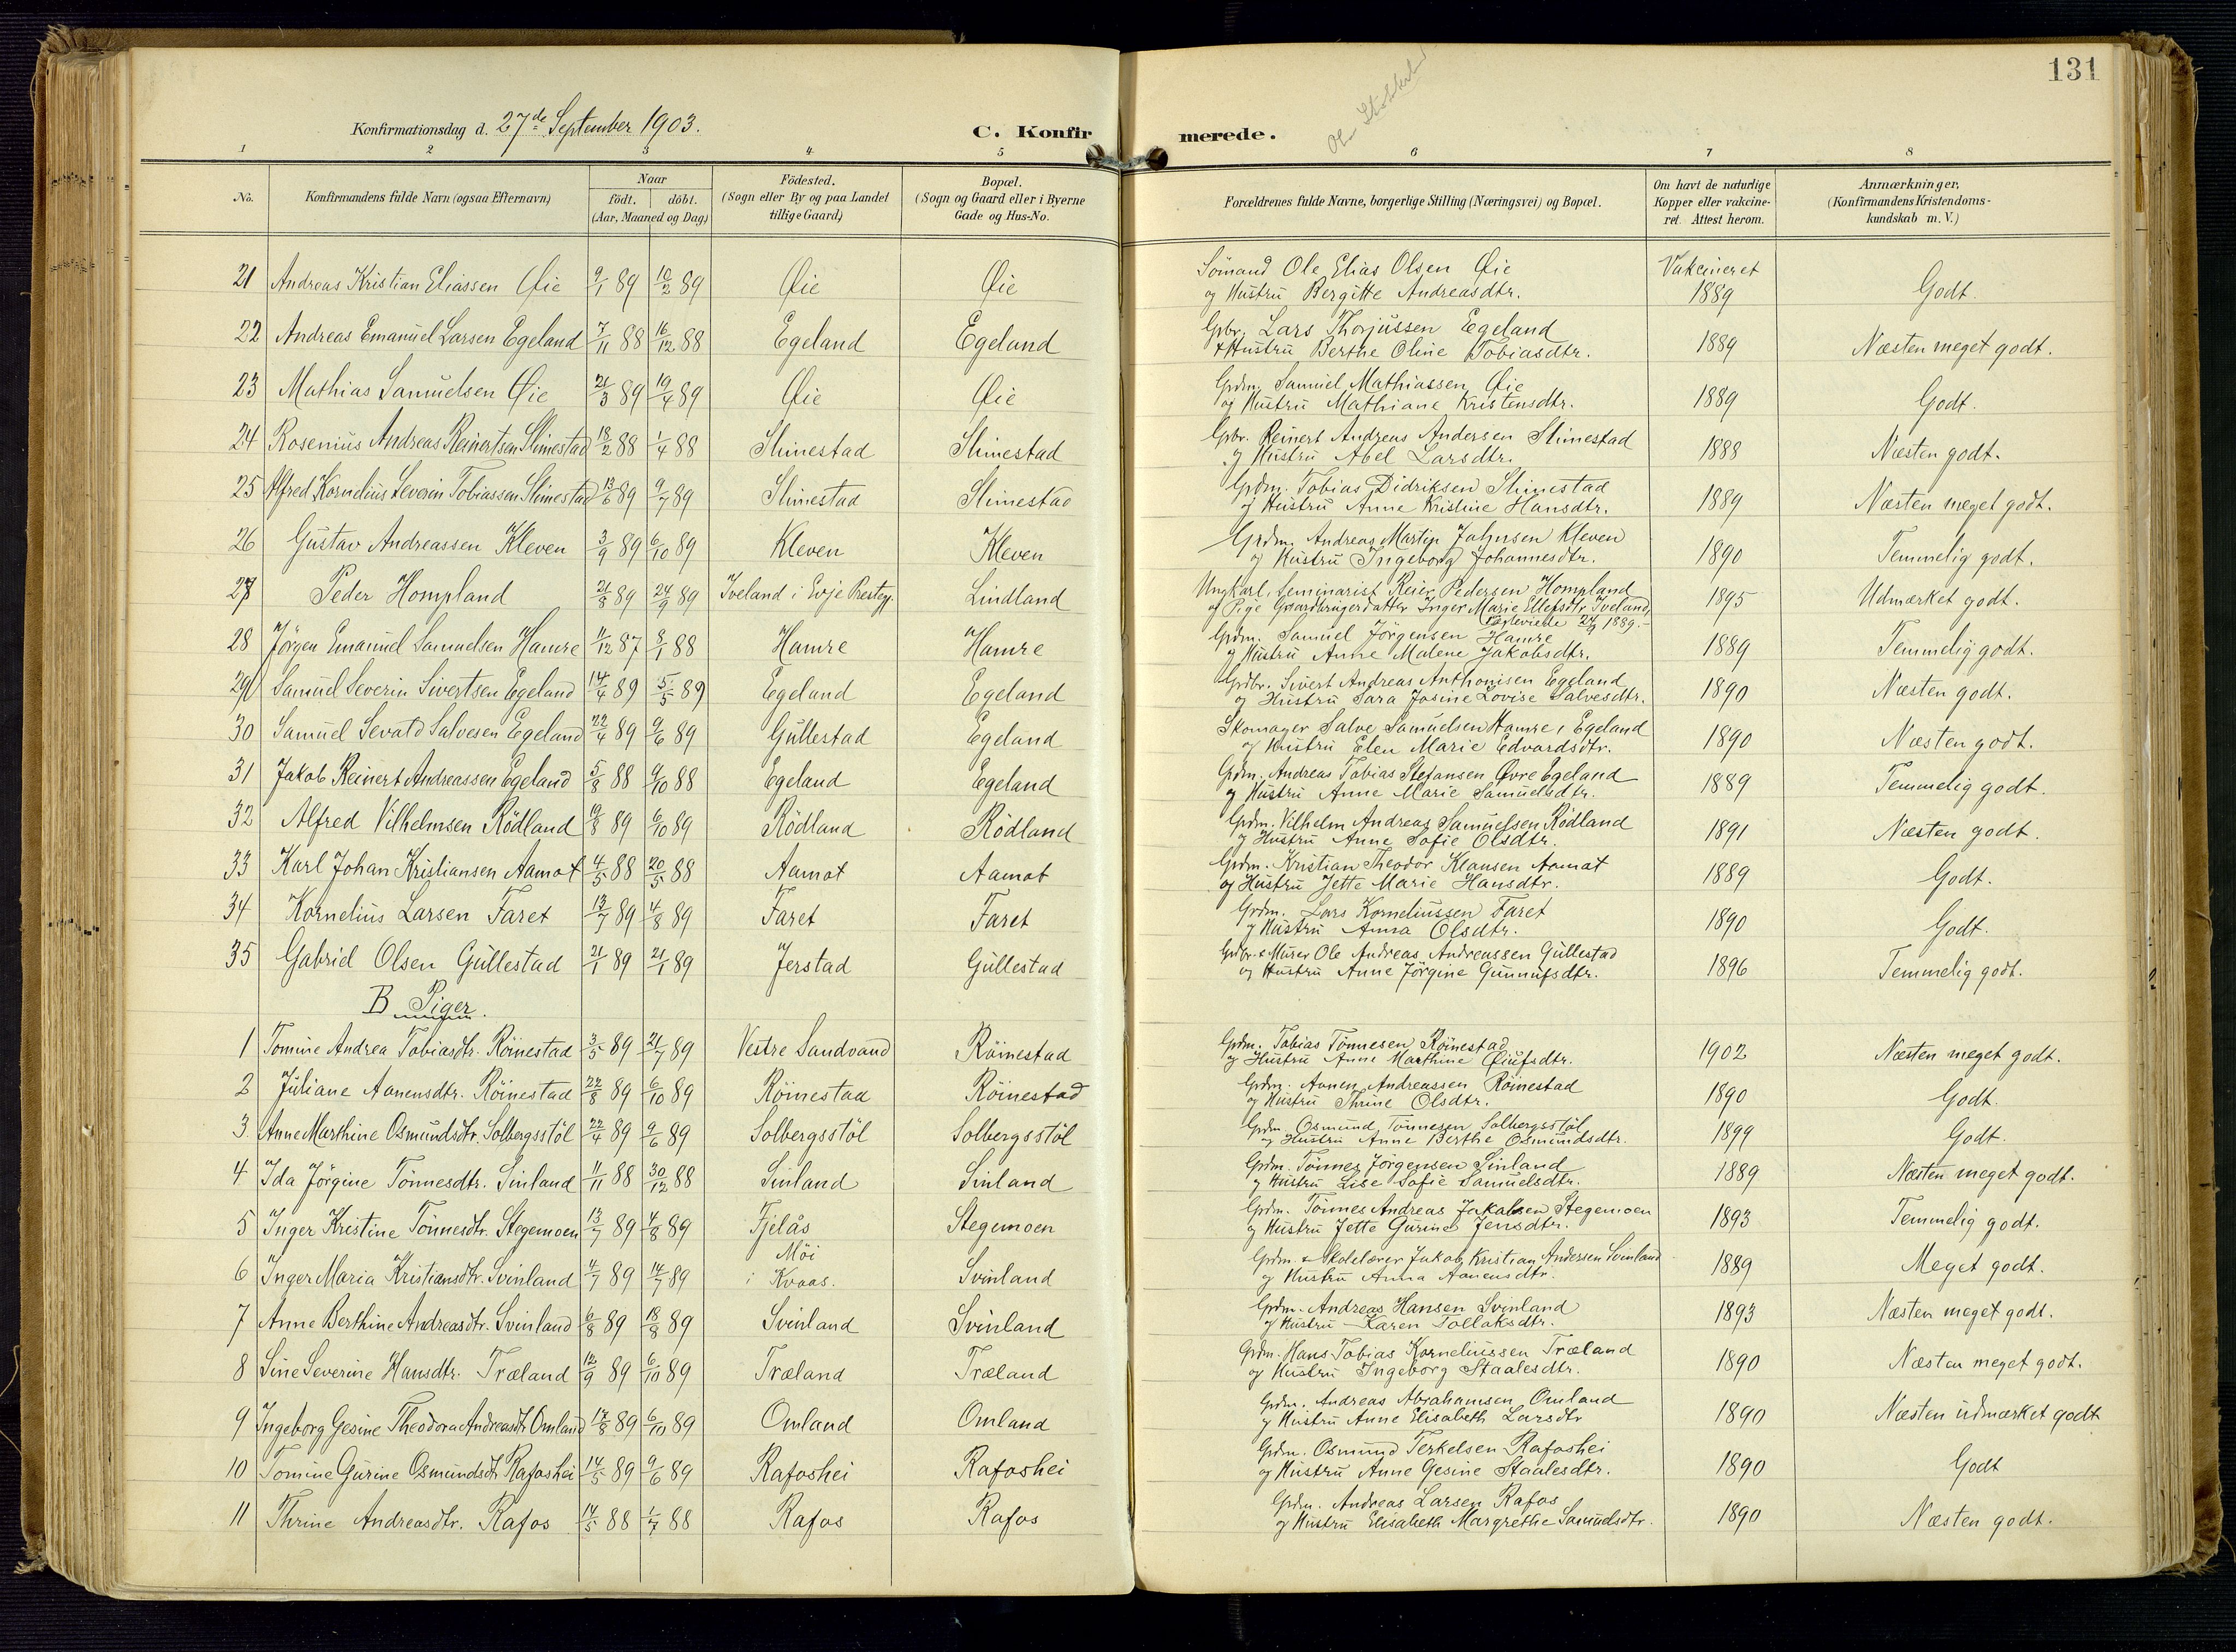 131
Konfirmationsdag d. 27de September 1903.
C. Konfirmerede.
1 2 3 4 5 6 7 8
No.
Konfirmandens fulde Navn (ogsaa Efternavn)
Naar
födt. döbt.
(Aar, Maaned og Dag)
Födested.
(Sogn eller By og paa Landet
tillige Gaard)
Bopæl.
(Sogn og Gaard eller i Byerne
Gade og Hus-No.
Forældrenes fulde Navne, borgerlige Stilling (Næringsvei) og Bopæl.
Om havt de naturlige
Kopper eller vakcine-
ret. Attest herom.
Anmærkninger.
(Konfirmandens Kristendoms-
kundskab m. V.)
21 Andreas Kristian Eliassen Øie 9/1 89 10/2 89 Øie Øie Sömand Ole Elias Olsen Øie Vakcineret
og Hustru Bergitte Andreasdtr. 1889 Godt.
22 Andreas Emanuel Larsen Egeland 7/11 88 16/12 88 Egeland Egeland Gbr. Lars Thorjussen Egeland
+ Hustru Berthe Oline Tobiasdtr. 1889 Næsten meget godt.
23 Mathias Samuelsen Øie 21/3 89 19/4 89 Øie Øie Grdm. Samuel Mathiassen Øie
og Hustru Mathiane Kristensdtr. 1889 Godt.
24 Rosenius Andreas Reinertsen Slimestad 18/2 88 1/4 88 Slimestad Slimestad Gbr. Reinert Andreas Andersen Slimestad
og Hustru Abel Larsdtr. 1888 Næsten godt.
25 Alfred Kornelius Severin Tobiassen Slimestad 13/6 89 9/7 89 Slimestad Slimestad Grdm. Tobias Didriksen Slimestad
og Hustru Anne Kristine Hansdtr. 1889 Næsten meget godt.
26 Gustav Andreassen Kleven 3/9 89 6/10 89 Kleven Kleven Grdm. Andreas Martin Jahnsen Kleven
og Hustru Ingeborg Johannesdtr. 1890 Temmelig godt.
27 Peder Hompland 21/8 89 24/9 89 Iveland i Evje Prestegj. Lindland Ungkarl, Seminarist Reier Pedersen Hompland
og Pige Gaardbrugerdatter Inger Marie Ellefsdtr Iveland, 1895 Udmærket godt.
24/9 1889.
28 Jörgen Emanuel Samuelsen Hamre 11/12 87 8/1 88 Hamre Hamre Grdm. Samuel Jörgensen Hamre
og Hustru Anne Malene Jakobsdtr. 1889 Temmelig godt.
29 Samuel Severin Sivertsen Egeland 14/4 89 5/5 89 Egeland Egeland Grdbr. Sivert Andreas Anthonisen Egeland
og Hustru Sara Josine Lovise Salvesdtr. 1890 Næsten godt.
30 Samuel Sevald Salvesen Egeland 22/4 89 9/6 89 Gullestad Egeland Skomager Salve Samuelsen Hamre, Egeland
og Hustru Elen Marie Edvardsdtr. 1890 Næsten godt.
31 Jakob Reinert Andreassen Egeland 5/8 88 9/10 88 Egeland Egeland Grdm. Andreas Tobias Stefansen Øvre Egeland
og Hustru Anne Marie Samuelsdtr. 1889 Temmelig godt.
32 Alfred Vilhelmsen Rödland 19/8 89 6/10 89 Rödland Rödland Grdm. Vilhelm Andreas Samuelsen Rödland
og Hustru Anne Sofie Olsdtr. 1891 Næsten godt.
33 Karl Johan Kristiansen Aamot 4/5 88 20/5 88 Aamot Aamot Grdm. Kristian Theodor Klausen Aamot
og Hustru Jette Marie Hansdtr. 1889 Godt.
34 Kornelius Larsen Faret 13/7 89 4/8 89 Faret Faret Grdm. Lars Korneliussen Faret
og Hustru Anna Olsdtr. 1890 Godt.
35 Gabriel Olsen Gullestad 21/1 89 21/1 89 Jerstad Gullestad Grdbr. & Murer Ole Andreas Andreassen Gullestad
og Hustru Anne Jörgine Gunnufsdtr. 1896 Temmelig godt.
B Piger.
1 Tomine Andrea Tobiasdtr. Röinestad 3/5 89 21/7 89 Vestre Sandvand Röinestad Grdm. Tobias Tönnesen Röinestad
og Hustru Anne Marthine Øiufsdtr. 1902 Næsten meget godt.
2 Juliane Aanensdtr. Röinestad 22/8 89 6/10 89 Röinestad Röinestad Grdm. Aanen Andreassen Röinestad
og Hustru Thrine Olsdtr. 1890 Godt.
3 Anne Marthine Osmundsdtr. Solbergsstöl 22/4 89 9/6 89 Solbergsstöl Solbergsstöl Grdm. Osmund Tönnesen Solbergsstöl
og Hustru Anne Berthe Osmundsdtr. 1899 Godt.
4 Ida Jörgine Tönnesdtr. Sinland 11/11 88 30/12 88 Sinland Sinland Grdm. Tönnes Jörgensen Sinland
og Hustru Lise Sofie Samuelsdtr. 1889 Næsten meget godt.
5 Inger Kristine Tönnesdtr. Stegemoen 13/7 89 4/8 89 Fjelås Stegemoen Grdm. Tönnes Andreas Jakobsen Stegemoen
og Hustru Jette Gurine Jensdtr. 1893 Temmelig godt.
6 Inger Maria Kristiansdtr. Svinland 4/7 89 14/7 89 Möi i Kvaas. Svinland Grdm. & Skolelærer Jakob Kristian Andersen Svinland
og Hustru Anna Aanensdtr. 1889 Meget godt.
7 Anne Berthine Andreasdtr. Svinland 6/8 89 18/8 89 Svinland Svinland Grdm. Andreas Hansen Svinland
og Hustru Karen Tollaksdtr. 1893 Næsten meget godt.
8 Sine Severine Hansdtr. Træland 12/9 89 6/10 89 Træland Træland Grdm. Hans Tobias Korneliussen Træland
og Hustru Ingeborg Staalesdtr. 1890 Næsten meget godt.
9 Ingeborg Gesine Theodora Andreasdtr Omland 17/8 89 6/10 89 Omland Omland Grdm. Andreas Abrahamsen Omland
og Hustru Anne Elisabeth Larsdtr 1890 Næsten udmærket godt
10 Tomine Gurine Osmundsdtr Rafoshei 14/5 89 9/6 89 Rafoshei Rafoshei Grdm. Osmund Terkelsen Rafoshei
og Hustru Anne Gesine Staalesdtr. 1890 Godt
11 Thrine Andreasdtr. Rafos 14/5 88 1/7 88 Rafos Rafos Grdm. Andreas Larsen Rafos
og Hustru Elisabeth Margrethe Samuelsdtr. 1890 Næsten godt.